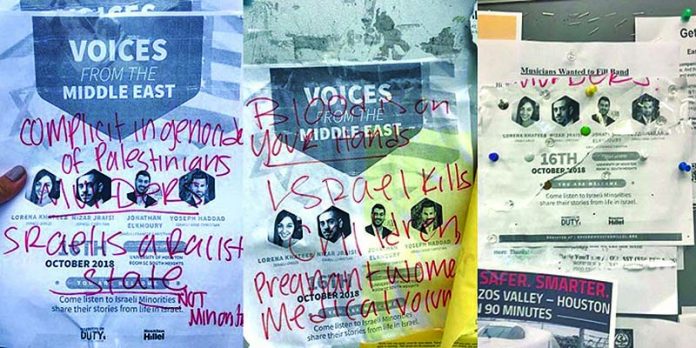 VOICES
FROM THE
MIDDLE EAST
complicit in genocide
of Palestinians
MURDER
LORENA KHATEEB NIZAR JRAISI JONATHAN ELKHOURY YOSEPH HADDAD
ISRAEL IS A RACIST
OCTOBER 2018
UNIVERSITY OF HOUSTON
ROOM SOUTH HEIGHTS
state
NOT
Minorities
Come listen to Israeli Minorities
share their stories from life in Israel.
DUTY
Hillel
VOICES
FROM THE
MIDDLE EAST
Blood is on
your Hands
ISRAEL Kills
LORENA KHATEEB NIZAR JRAISI JONATHAN ELKHOURY YOSEPH HADDAD
children,
Pregnant women
OCTOBER 2018
Medical volun
Come listen to Israeli Minorities
share their stories from life in Israel.
DUTY
Hillel
Get
Musicians Wanted to Fill Band
MURDERERS!
LORENA KHATEEB NIZAR JRAISI
16TH
OCTOBER 2018
UNIVERSITY OF HOUSTON
YOU ARE WELCOME
Come listen to Israeli Minorities
share their stories from life in Israel.
DUTY
Hillel
SAFER. SMARTER.
ZOS VALLEY – HOUSTON
N 90 MINUTES